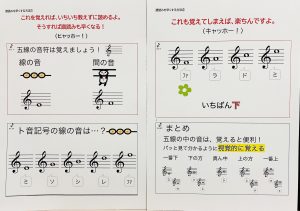 これを覚えれば、いちいち数えずに読めるよ。
そうすれば譜読みも早くなる！
（ヒャッホー！）
五線の音符は覚えましょう！
線の音
間の音
ト音記号の線の音は…？
ミ
ソ
シ
レ
ファ
これも覚えてしまえば、楽ちんですよ。
（キャッホー！）
ファ
ラ
ド
ミ
いちばん下
まとめ
五線の中の音は、覚えると便利！
パッと見て分かるように視覚的に覚える
一番下
下の方
真ん中
上の方
一番上